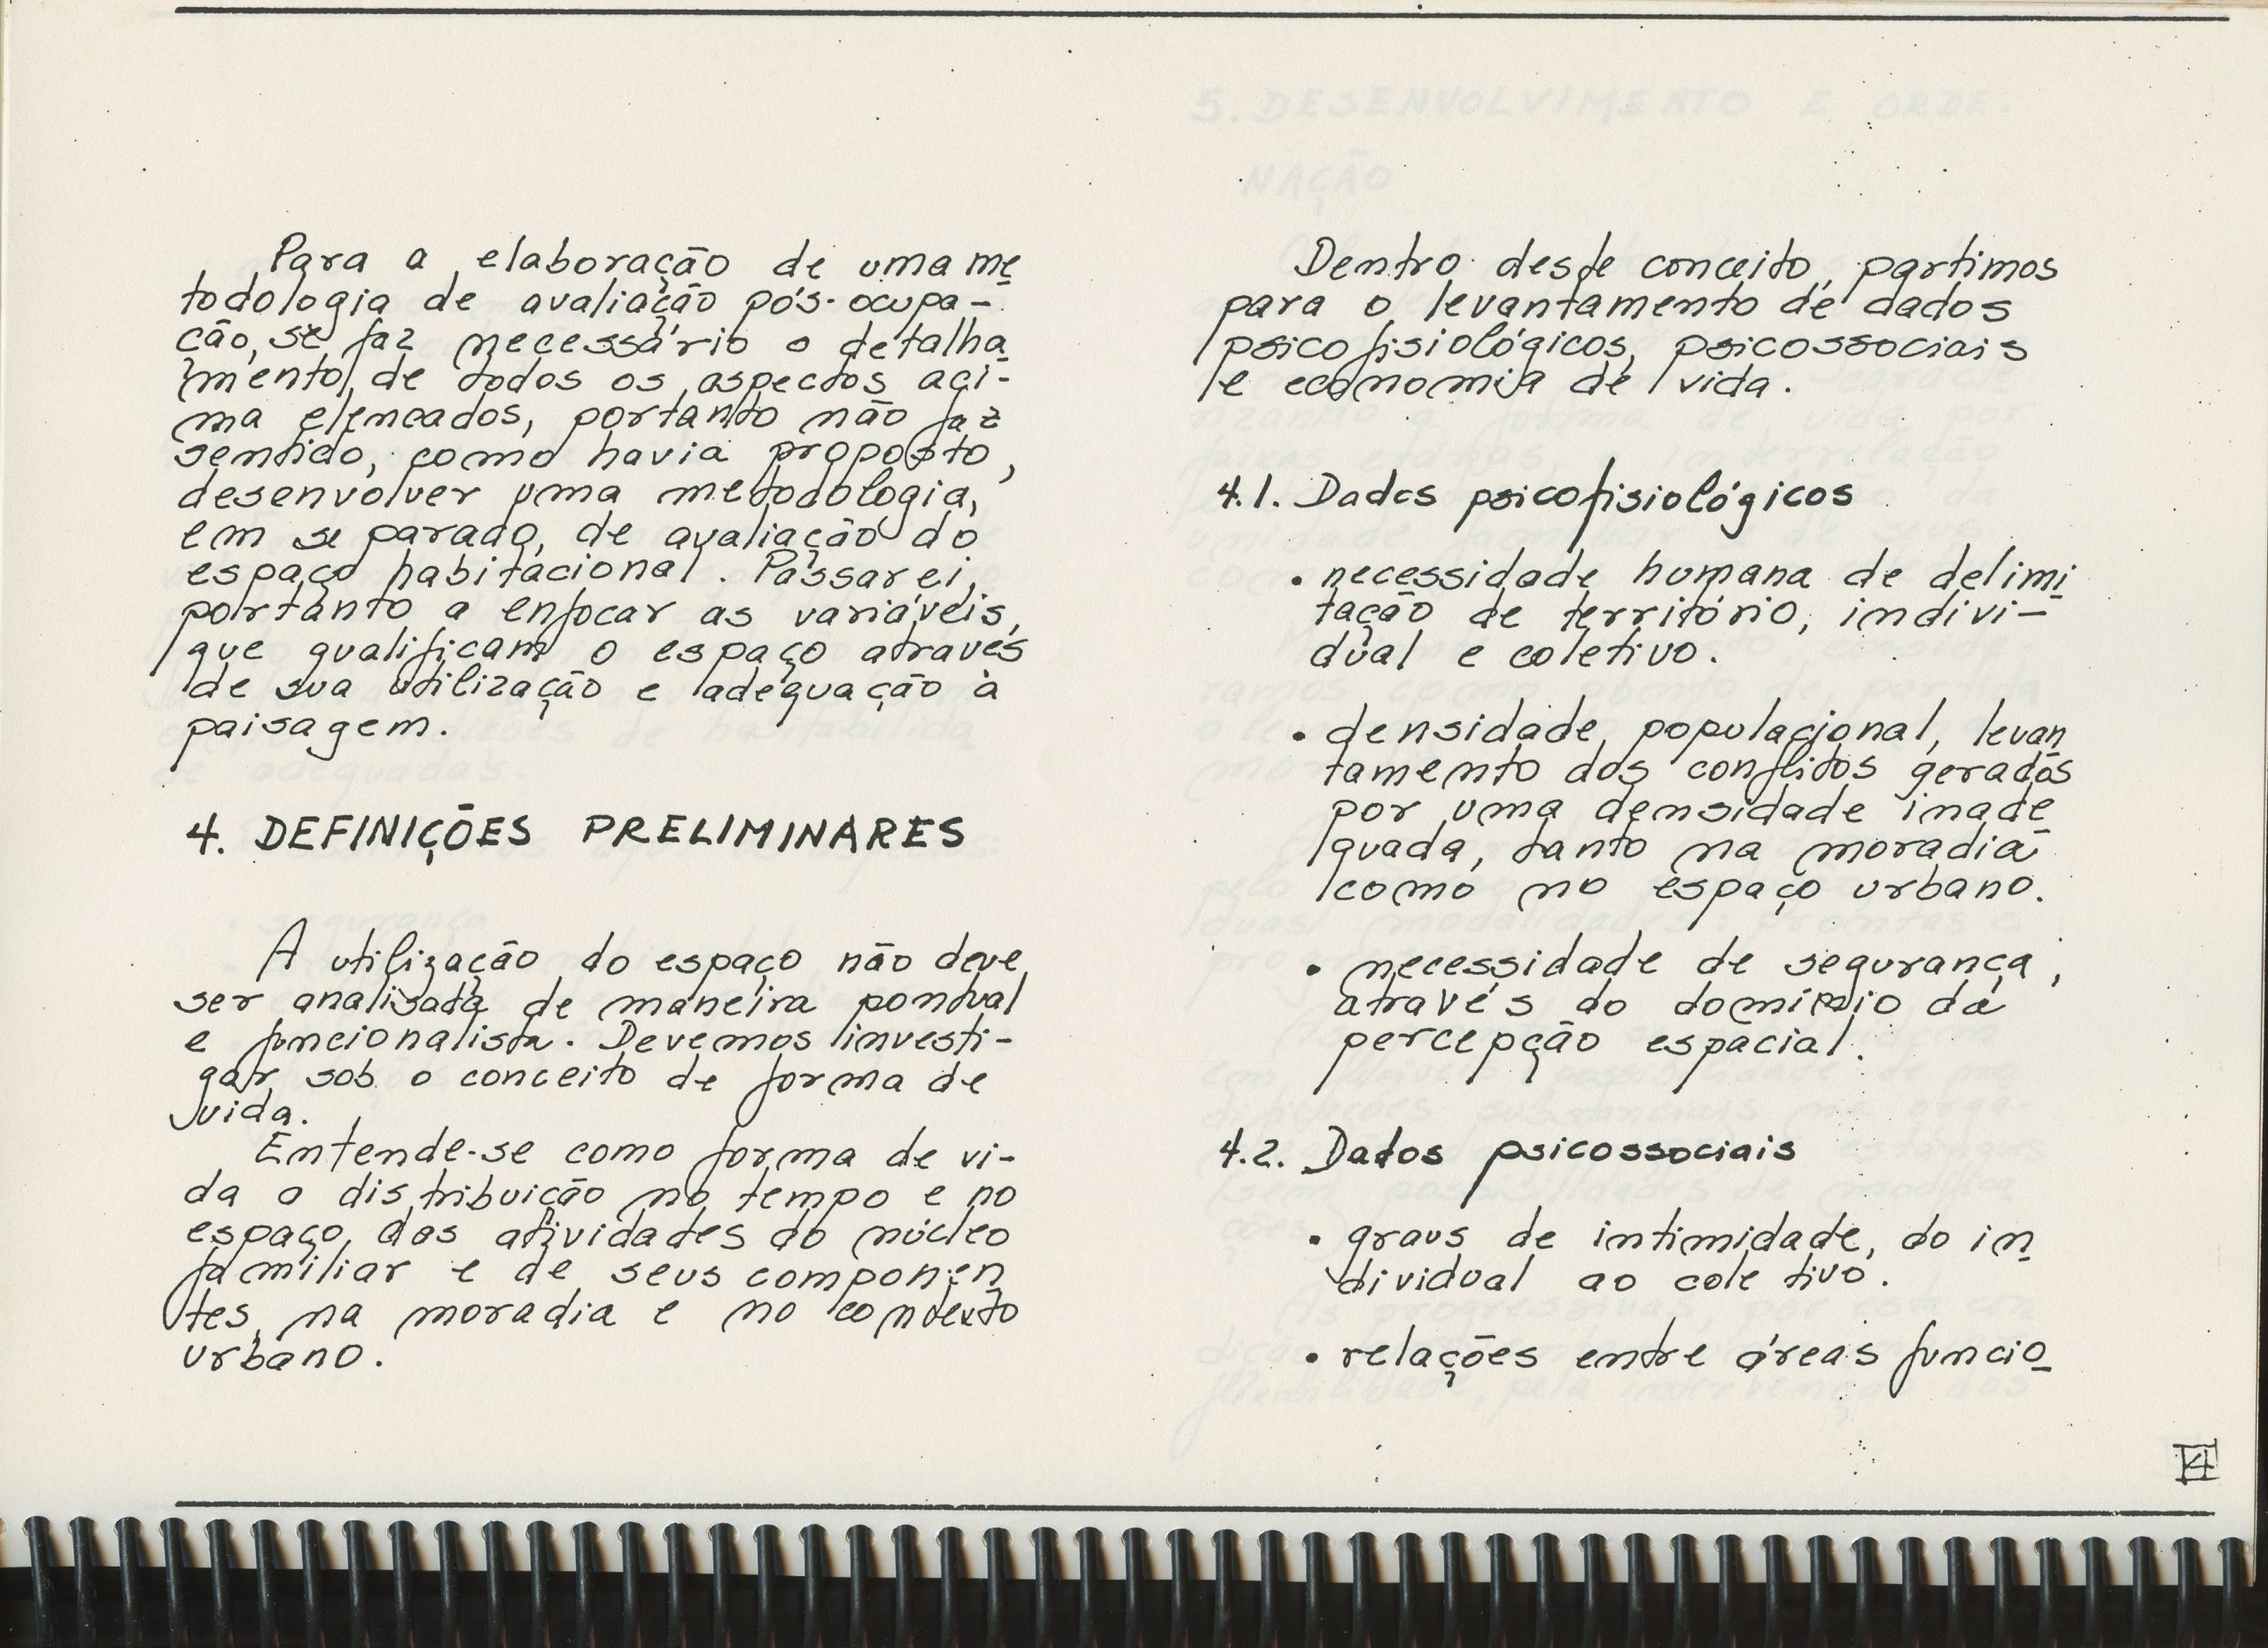 Para a elaboração de uma me
todologia de avaliação pós-ocupa-
ção, se faz necessário o detalha
mento de todos os aspectos aci-
ma elencados, portanto não faz
sentido, como havia proposto,
desenvolver uma metodologia,
em separado, de avaliação do
espaço habitacional. Passarei,
portanto a enfocar as variáveis,
que qualificam o espaço através
de sua utilização e adequação à
paisagem.
4. DEFINIÇÕES PRELIMINARES
A utilização do espaço não deve
ser analisada de maneira pontual
e funcionalista. Devemos investi-
gar sob o conceito de forma de
vida.
Entende-se como forma de vi-
da a distribuição no tempo e no
espaço, das atividades do núcleo
familiar e de seus componen
tes, na moradia e no contexto
urbano.
Dentro deste conceito, partimos
para o levantamento de dados
psicofisiológicos, psicossociais
e economia de vida.
4.1. Dados psicofisiológicos
• necessidade humana de delimi
tação de território, indivi-
dual e coletivo.
• densidade populacional, levan
tamento dos conflitos gerados
por uma densidade inade
quada, tanto na moradia
como no espaço urbano.
• necessidade de segurança,
através do domínio da
percepção espacial.
4.2. Dados psicossociais
• graus de intimidade, do in
dividual ao coletivo.
• relações entre áreas funcio
4